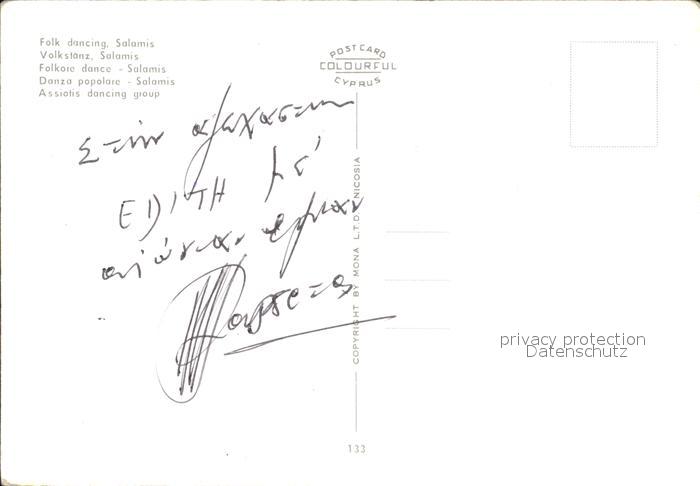 Folk dancing, Salamis
Volkstanz, Salamis
Folkore dance - Salamis
Danza popolare - Salamis
Assiotis dancing group
POST CARD
COLOURFUL
CYPRUS
Στήν
ΕΔΙΤΗ μέ
COPYRIGHT BY MONA L.T.D. NICOSIA
privacy protection
Datenschutz
133